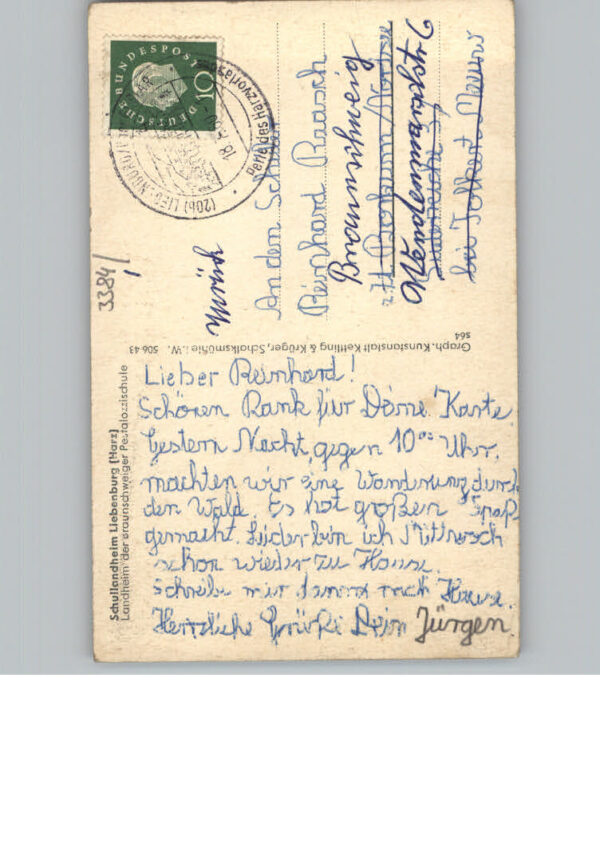 Schullandheim Liebenburg (Harz)
Landheim der Braunschweiger Pestalozzischule
Lieber Reinhard!
Schönen Dank für Deine Karte
Gestern Nacht, gegen 10⁰⁰ Uhr.
machten wir eine Wanderung durch
den Wald. Es hat großen Spaß
gemacht. Leider bin ich Mittwoch
schon wieder zu Hause.
Schreibe mir dann nach Hause.
Herzliche Grüße Dein Jürgen.
Graph. Kunstanstalt Kettling & Krüger, Schalksmühle i. W. 506 43
S64
3384/
DEUTSCHE BUNDESPOST
10
(20b) LIEBENBURG
Perle des Harzvorlandes
18
Zurück
An den Schüler
Reinhard Raasch
Braunschweig
z.Zt.
Wendenmaschstr. 6
bei